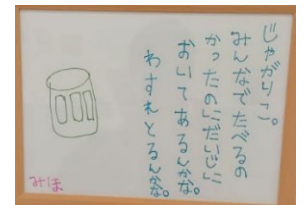 じゃがりこ。
みんなでたべるの
かったの、だいじに
おいてあるんかな。
わすれとるんかな。
みほ